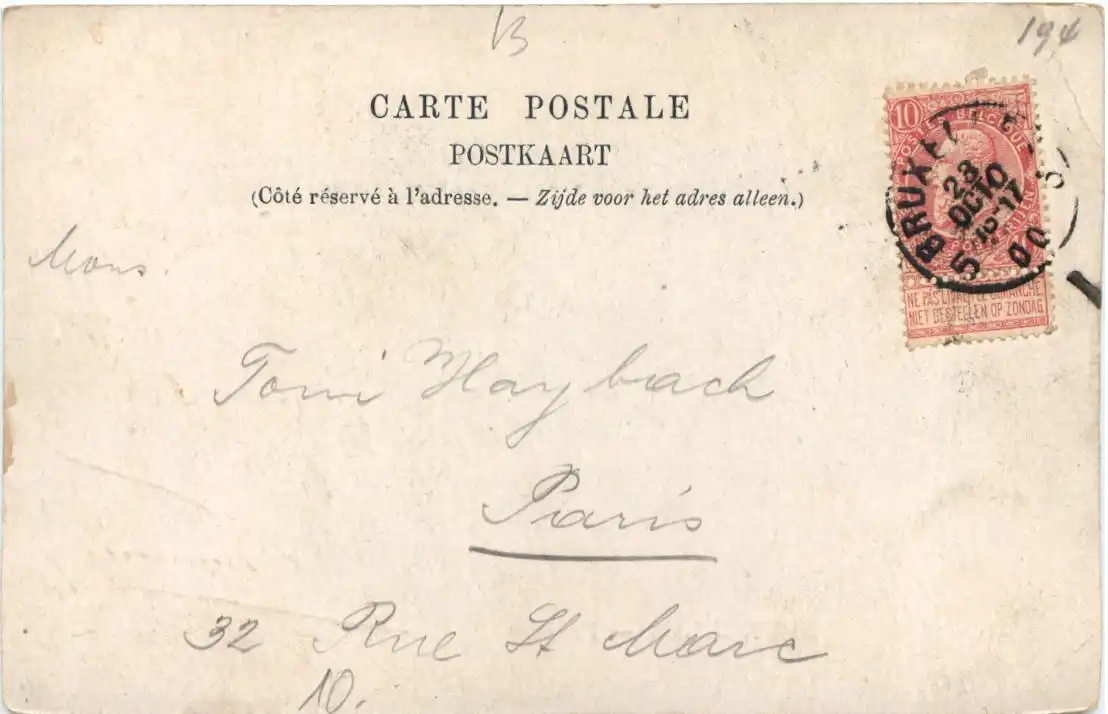 B
194
CARTE POSTALE
POSTKAART
(Côté réservé à l'adresse. — Zijde voor het adres alleen.)
10
POSTES BELGIQUE
BRUXEL
5
23
OCTO
00
NE PAS LIVRER LE DIMANCHE
NIET BESTELLEN OP ZONDAG
Mons.
Tomi Haybach
Paris
32 Rue St Marc
10.